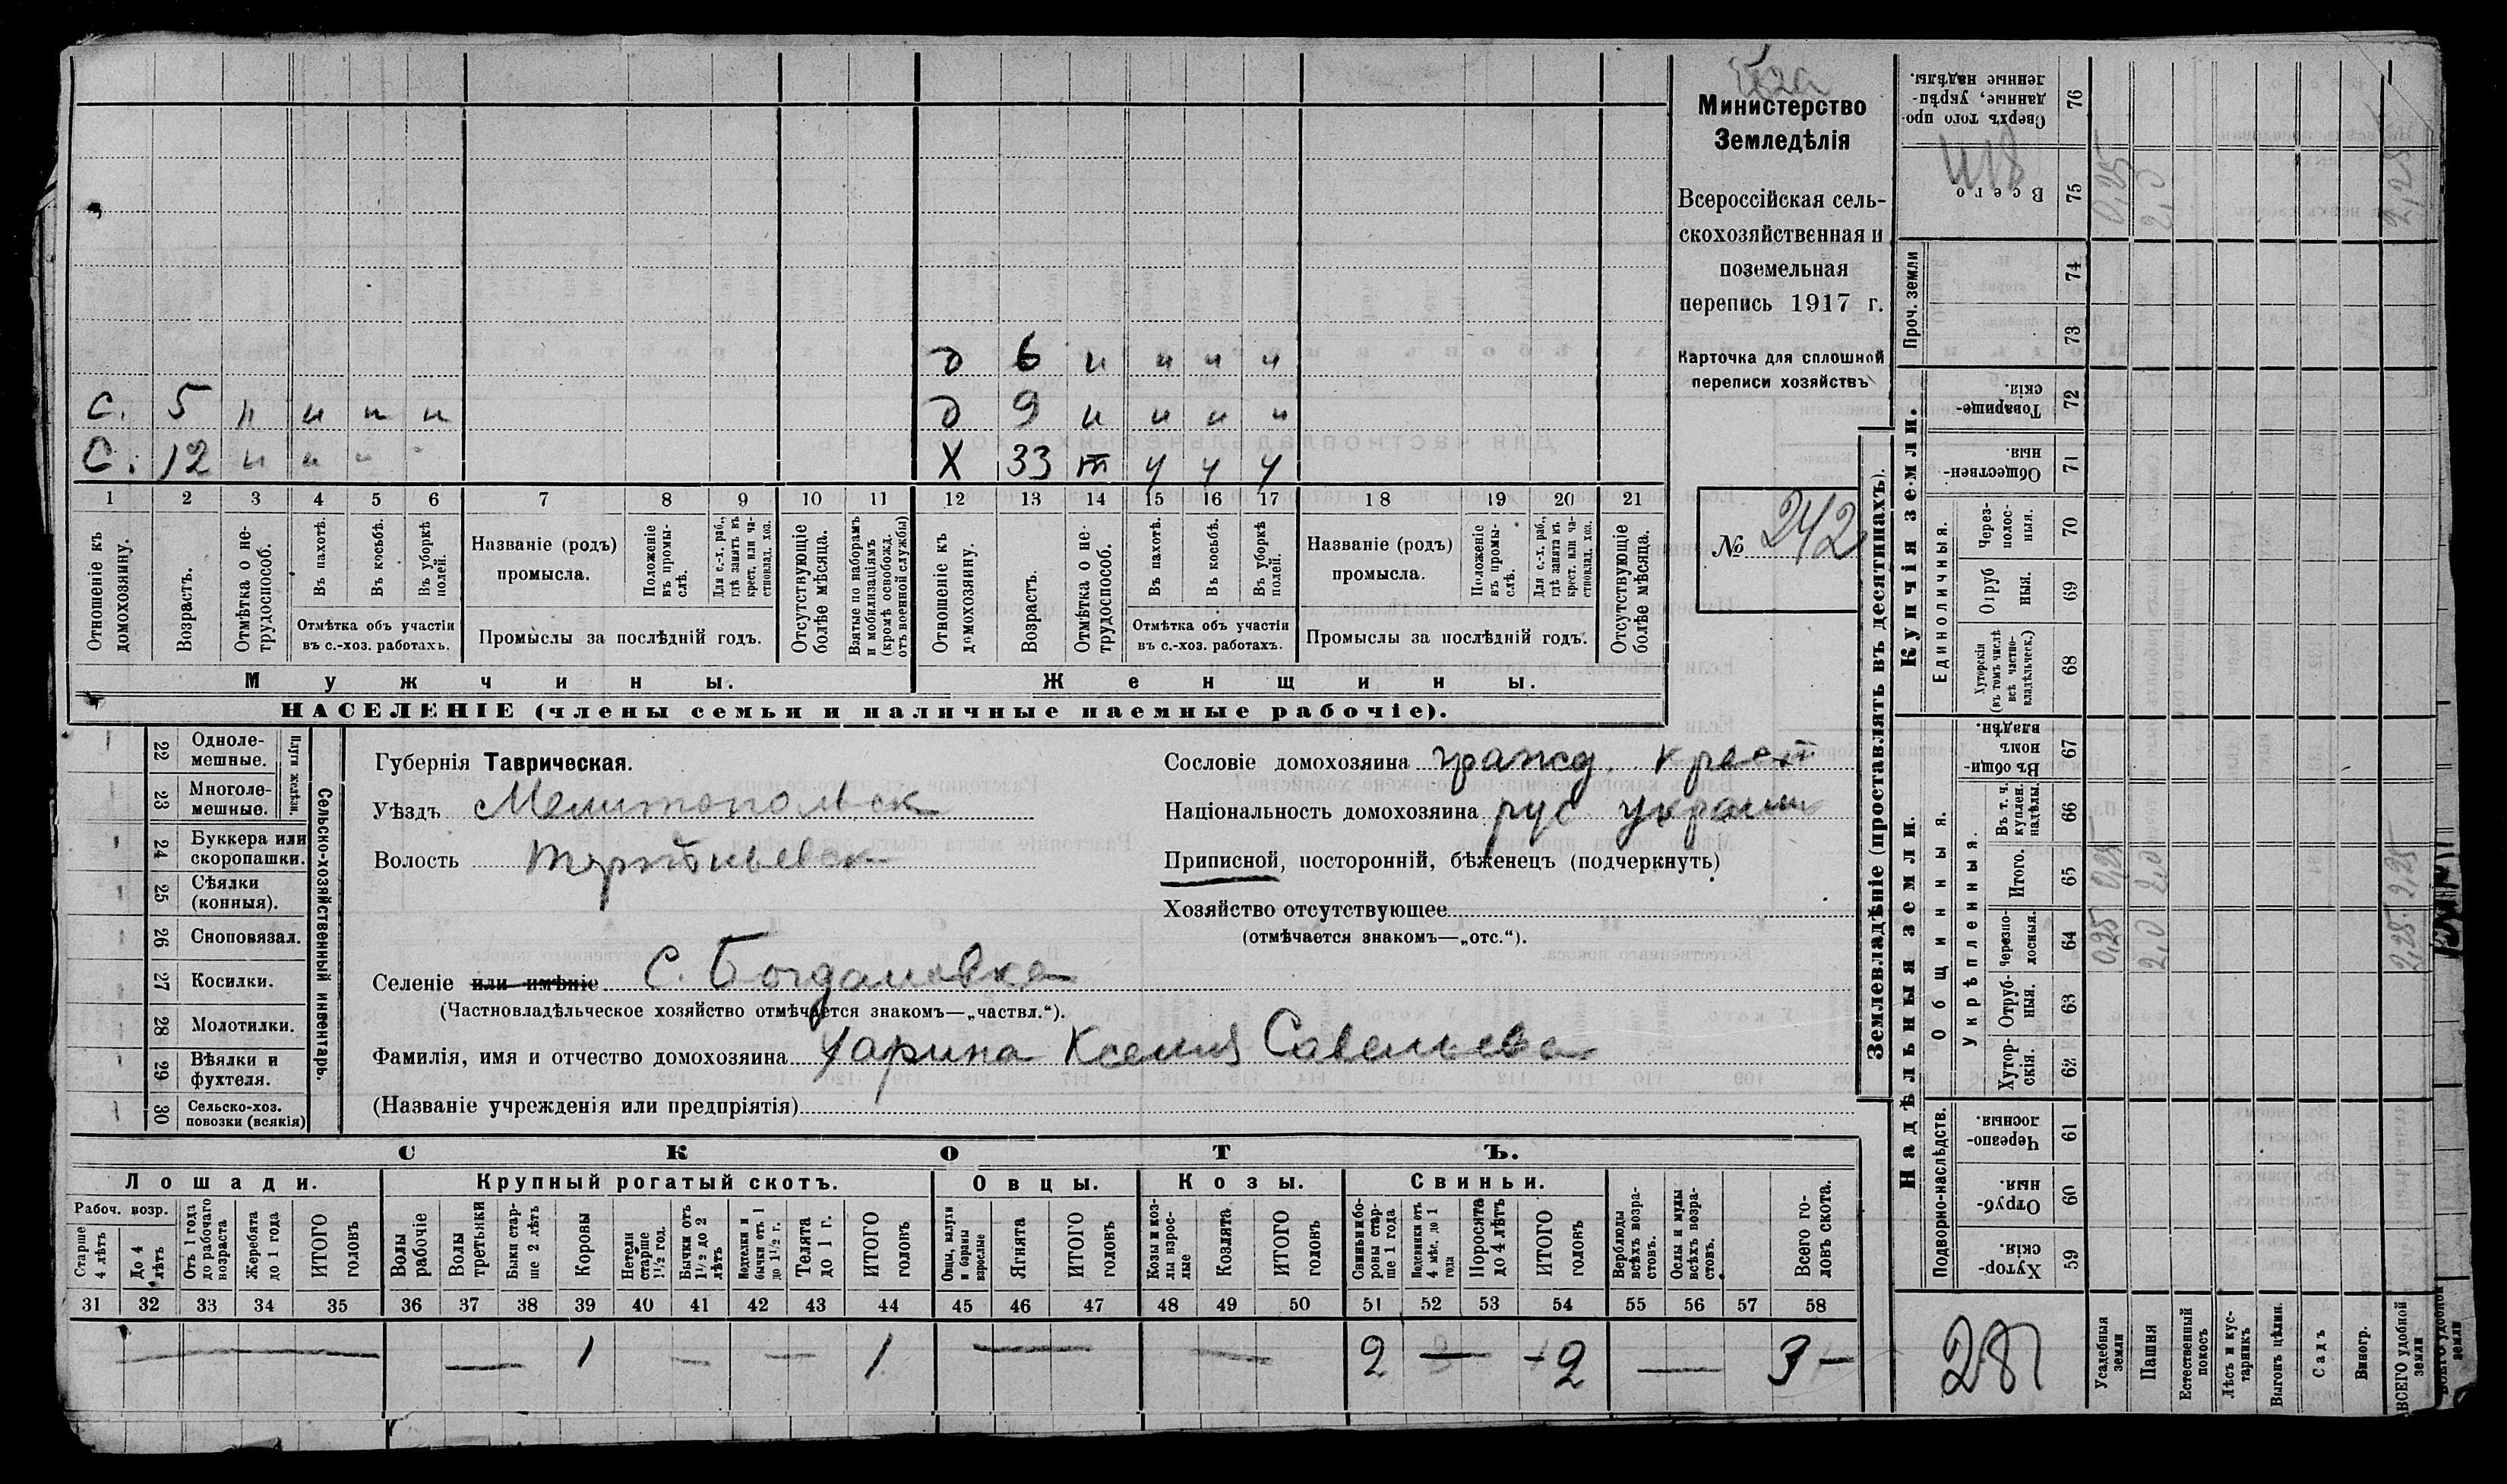 д 6 и и и и
С. 5 и и и и д 9 и и и и
С. 12 и и и Х 33 т у у у
1 2 3 4 5 6 7 8 9 10 11 12 13 14 15 16 17 18 19 20 21
Отношеніе къ домохозяину.
Возрастъ.
Отмѣтка о не-трудоспособ.
Въ пахотѣ.
Въ косьбѣ.
Въ уборкѣ полей.
Отмѣтка объ участіи
въ с.-хоз. работахъ.
Названіе (родъ)
промысла.
Положеніе въ промы-слѣ.
Для с.-х. раб., гдѣ занятъ въ крест. или ча-стновлад. хоз.
Промыслы за послѣдній годъ.
Отсутствующіе болѣе мѣсяца.
Взятые по наборамъ и мобилизаціямъ (кромѣ освобожд. отъ военной службы)
Отношеніе къ домохозяину.
Возрастъ.
Отмѣтка о не-трудоспособ.
Въ пахотѣ.
Въ косьбѣ.
Въ уборкѣ полей.
Отмѣтка объ участіи
въ с.-хоз. работахъ.
Названіе (родъ)
промысла.
Положеніе въ промы-слѣ.
Для с.-х. раб., гдѣ занятъ въ крест. или ча-стновлад. хоз.
Промыслы за послѣдній годъ.
Отсутствующіе болѣе мѣсяца.
Мужчины.
Женщины.
НАСЕЛЕНІЕ (члены семьи и наличные наемные рабочіе).
Министерство
Земледѣлія
Всероссійская сель-
скохозяйственная и
поземельная
перепись 1917 г.
Карточка для сплошной
переписи хозяйствъ
№ 242
22 Одноле-мешные.
23 Многоле-мешные.
Плуги желѣзн.
24 Буккера или скоропашки.
25 Сѣялки (конныя).
26 Сноповязал.
27 Косилки.
28 Молотилки.
29 Вѣялки и фухтеля.
30 Сельско-хоз. повозки (всякія)
Сельско-хозяйственный инвентарь.
Губернія Таврическая.
Уѣздъ Мелитопольск
Волость
Селеніе или имѣніе С. Богдановка
(Частновладѣльческое хозяйство отмѣчается знакомъ—„частвл.“).
Фамилія, имя и отчество домохозяина Ксенія Савельева
(Названіе учрежденія или предпріятія)
Сословіе домохозяина гражд. крест
Національность домохозяина рус украин
Приписной, посторонній, бѣженецъ (подчеркнуть)
Хозяйство отсутствующее
(отмѣчается знакомъ—„отс.“).
СКОТЪ.
Лошади. Крупный рогатый скотъ. Овцы. Козы. Свиньи.
Рабоч. возр.
Старше 4 лѣтъ
До 4 лѣтъ
Отъ 1 года до рабочаго возраста
Жеребята до 1 года
ИТОГО головъ
Волы рабочіе
Волы третьяки
Быки стар-ше 2 лѣтъ
Коровы
Нетели старше 1½ год.
Бычки отъ 1½ до 2 лѣтъ
Подтелки и бычки отъ 1 до 1½ г.
Телята до 1 г.
ИТОГО головъ
Овцы, валухи и бараны взрослые
Ягнята
ИТОГО головъ
Козы и коз-лы взрос-лые
Козлята
ИТОГО головъ
Свиньи и бо-ровы стар-ше 1 года
Подсвинки отъ 4 мѣс. до 1 года
Поросята до 4 лѣтъ
ИТОГО головъ
Верблюды всѣхъ возра-стовъ.
Ослы и мулы всѣхъ возра-стовъ.
Всего го-ловъ скота.
31 32 33 34 35 36 37 38 39 40 41 42 43 44 45 46 47 48 49 50 51 52 53 54 55 56 57 58
— — 1 — — 1 — — 2 — 2 — 3 —
Землевладѣніе (проставлять въ десятинахъ).
Надѣльныя земли.
Купчія земли.
Проч. земли
Подворно-наслѣдств.
Общинныя.
Укрѣпленныя.
Единоличныя.
59 Хутор-скія.
60 Отруб-ныя.
61 Черезпо-лосныя.
62 Хутор-скія.
63 Отруб-ныя.
64 Черезпо-лосныя.
65 Итого.
66 Въ т. ч. куплен. надѣлы.
67 Въ общи-нномъ владѣн.
68 Хуторскія (въ томъ числѣ всѣ частно-владѣльческ.)
69 Отруб ныя.
70 Через-полос-ныя.
71 Обществен-ныя.
72 Товарище-скія.
73
74
75 Всего
76 Сверхъ того про-данные, укрѣп-ленные надѣлы.
281
Усадебныя земли 0,25 0,25 0,25
Пашня 2,0 2,0 2,0
Естественный покосъ
Лѣсъ и кус-тарникъ
Выгонъ цѣлин.
Садъ
Виногр.
ВСЕГО удобной земли 2,25 2,25 2,25